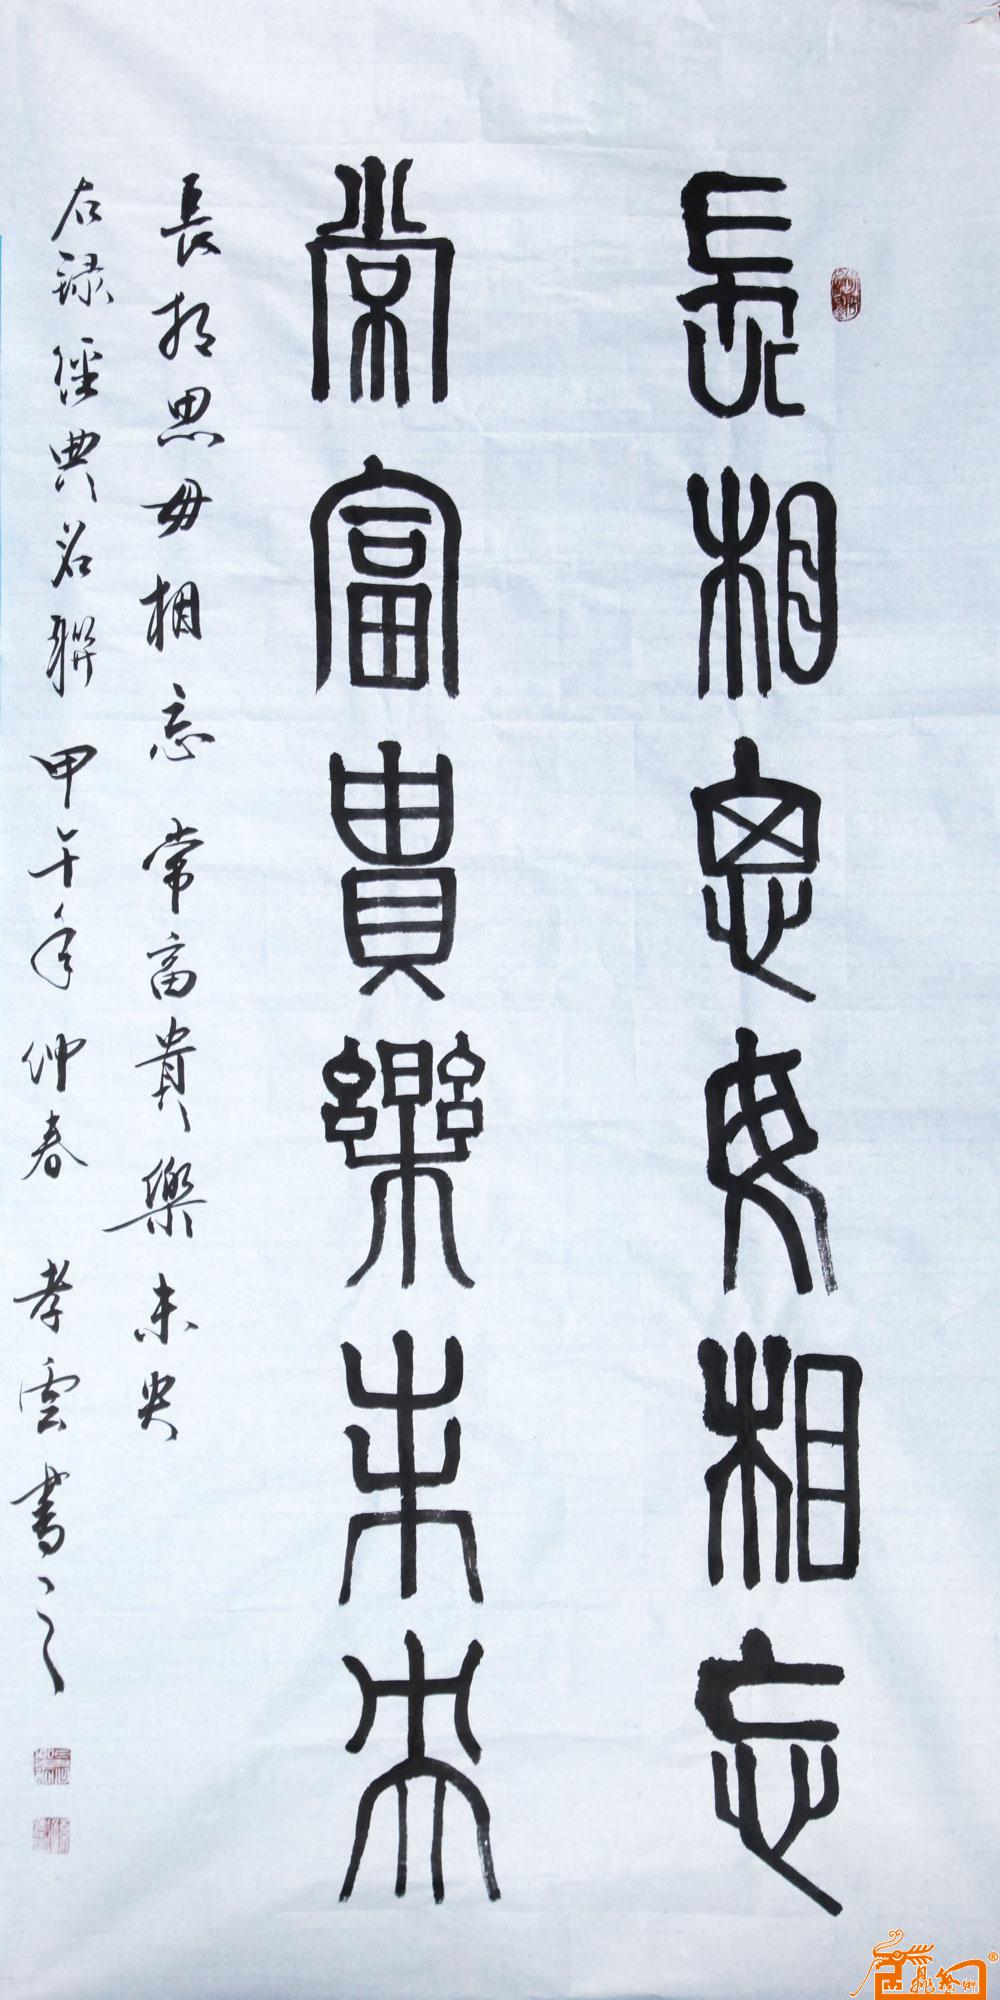 長相思毋相忘
常富貴樂未央
長相思毋相忘 常富貴樂未央
右録經典名聯 甲午年仲春 孝雲書之